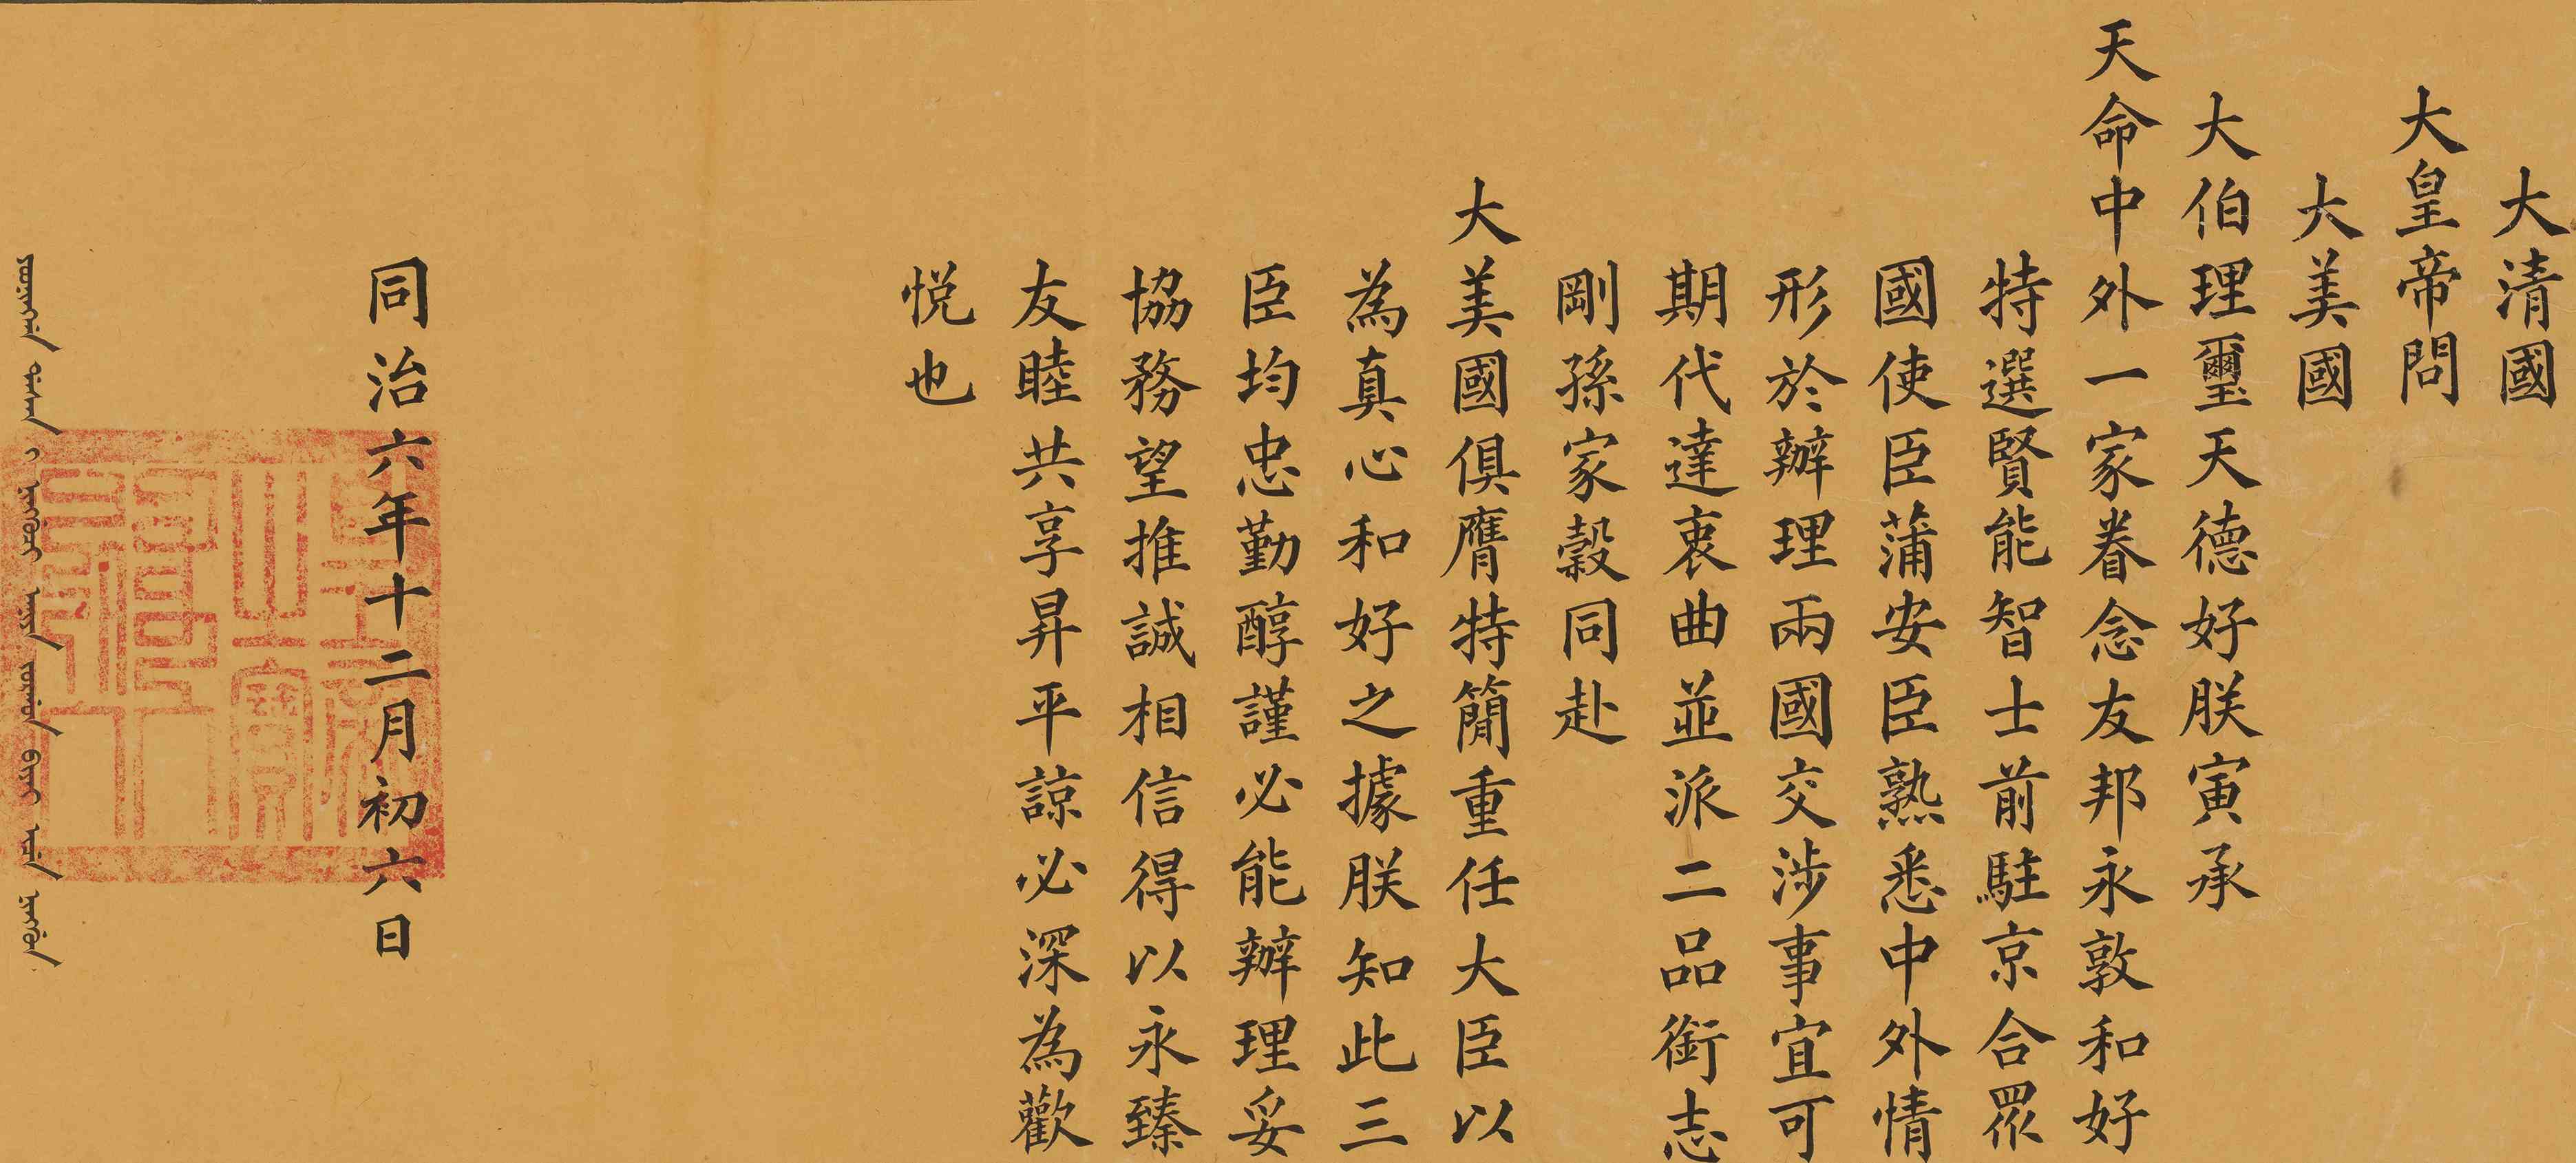 大清國
大皇帝問
大美國
大伯理璽天德好朕寅承
天命中外一家眷念友邦永敦和好
特選賢能智士前駐京合眾
國使臣蒲安臣熟悉中外情
形於辦理兩國交涉事宜可
期代達衷曲並派二品銜志
剛孫家穀同赴
大美國俱膺特簡重任大臣以
為真心和好之據朕知此三
臣均忠勤醇謹必能辦理妥
協務望推誠相信得以永臻
友睦共享昇平諒必深為歡
悅也
同治六年十二月初六日